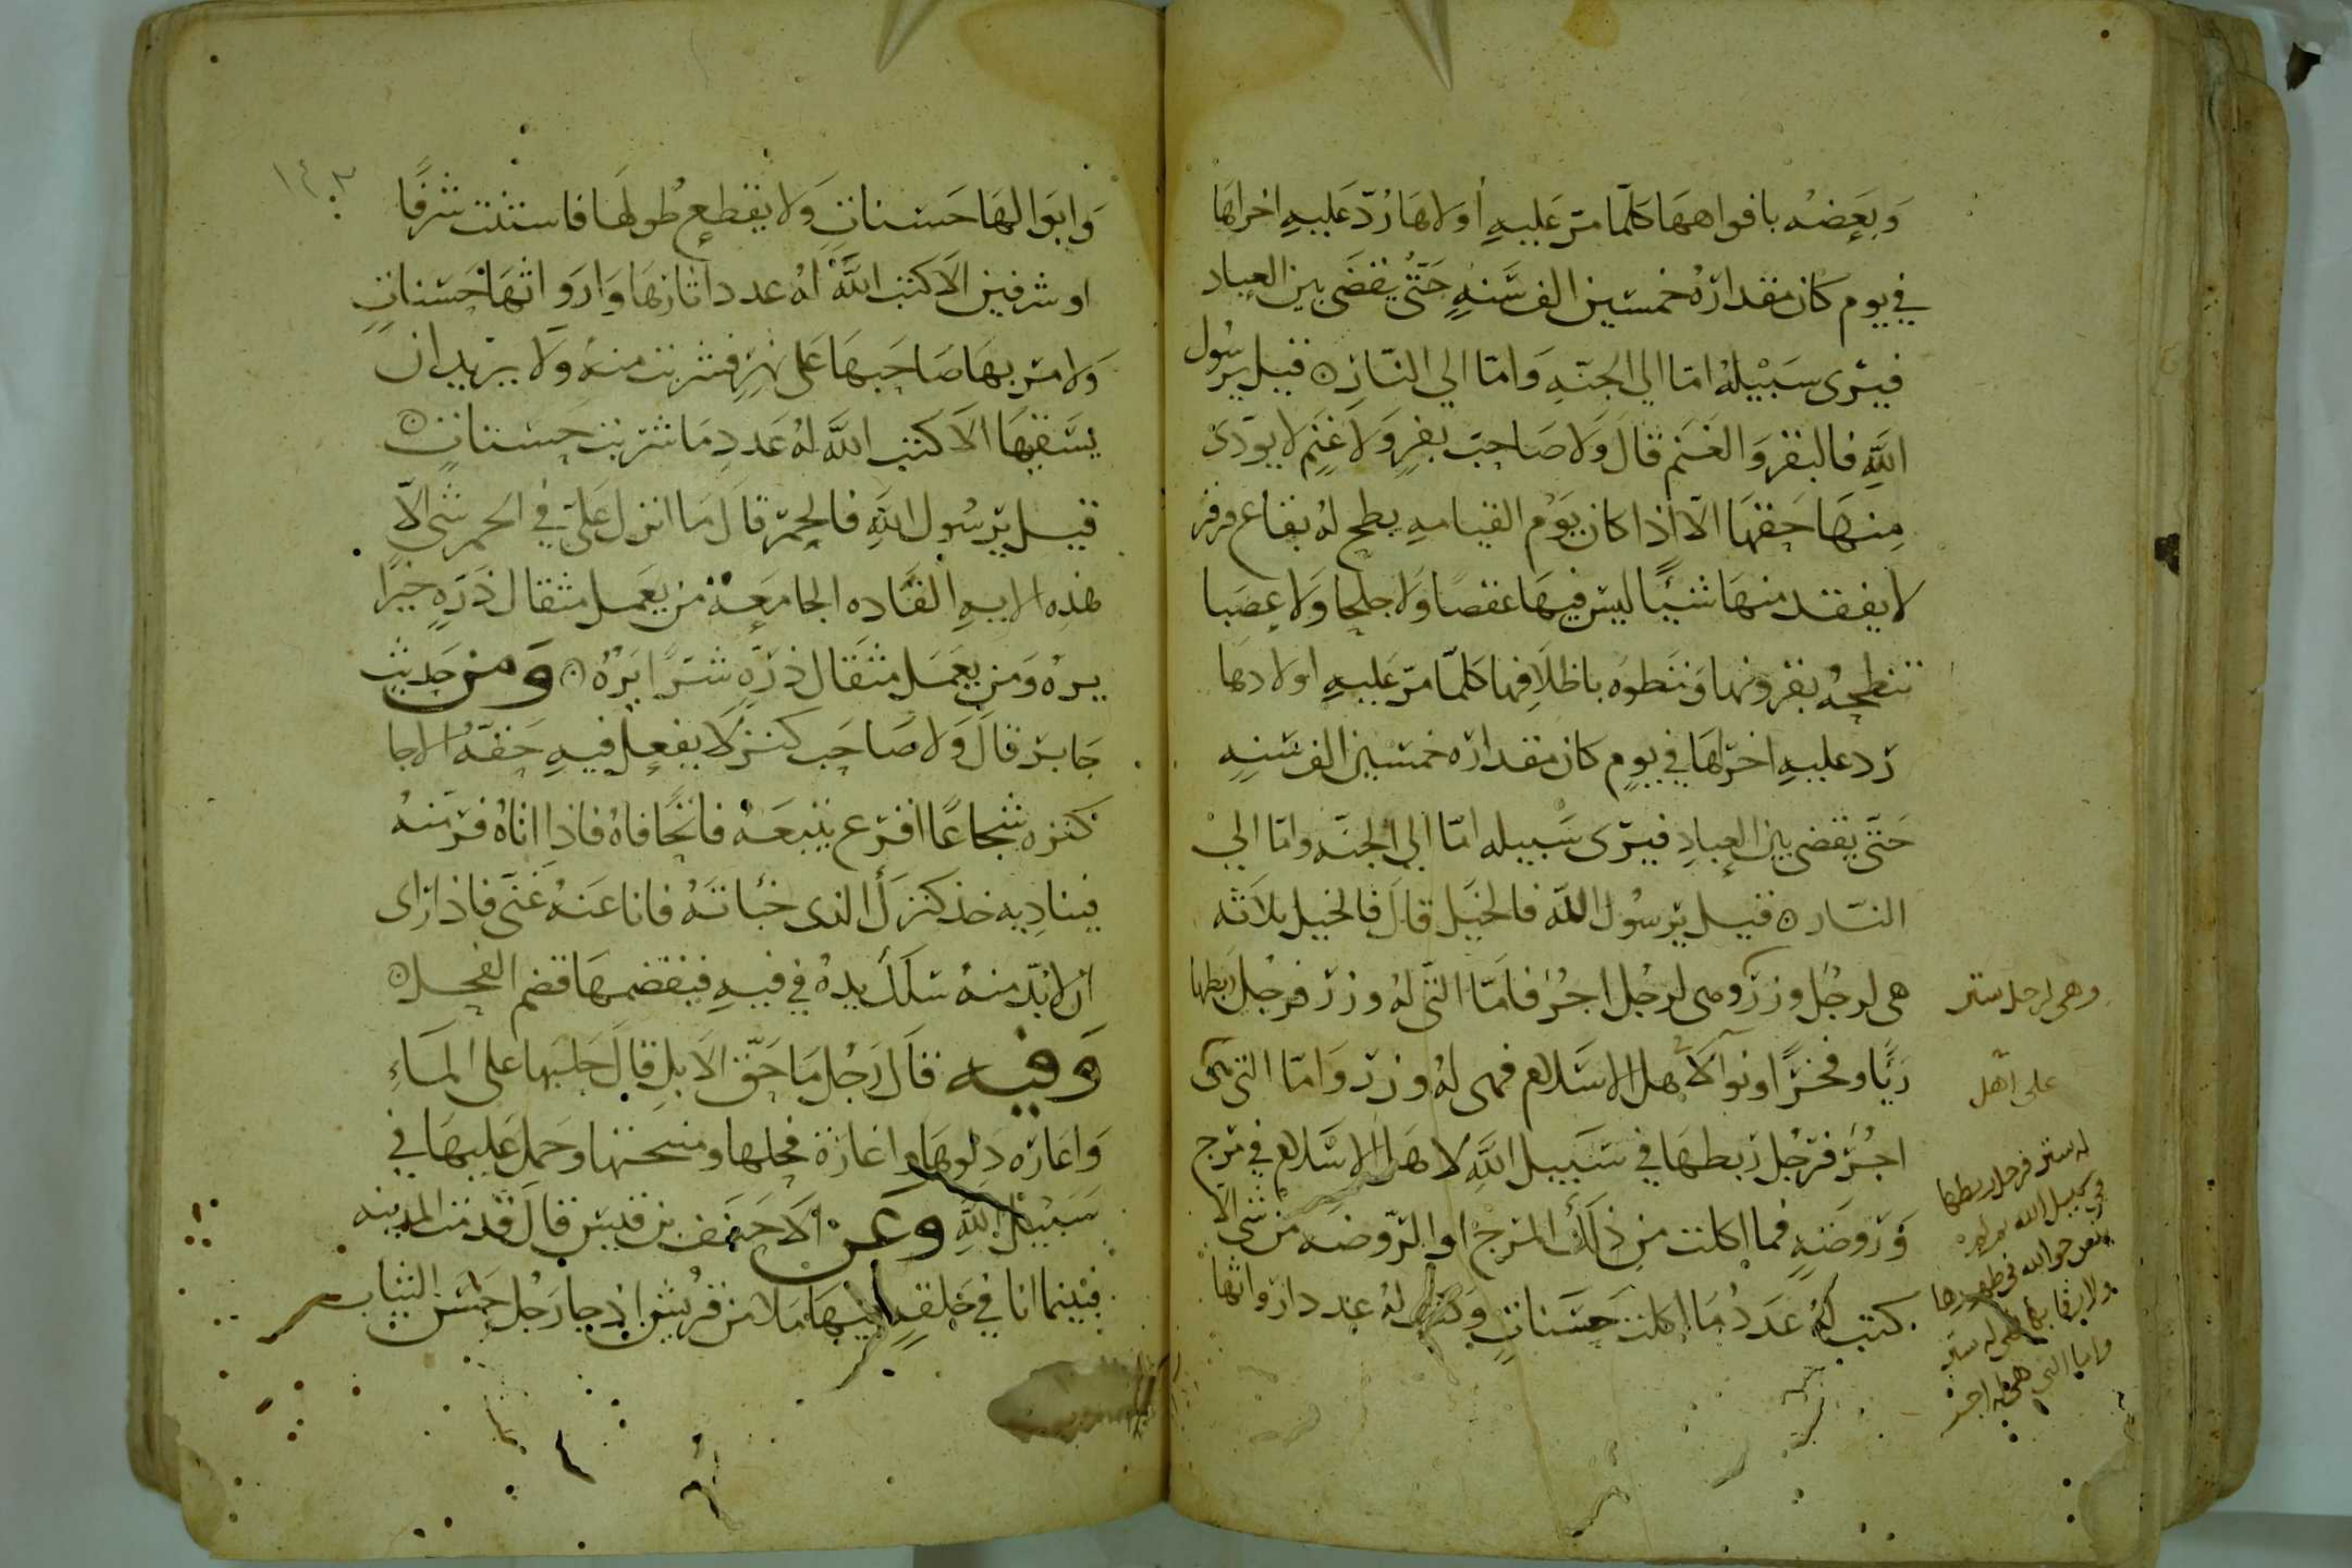 وبعضه بافواهها كلما مر عليه أولاها رد عليه اخراها
في يوم كان مقداره خمسين الف سنه حتى يقضى بين العباد
فيرى سبيله اما الي الجنه واما الي النار ن قيل يرسول
الله فالبقر والغنم قال ولا صاحب بقر ولا غنم لا يودى
منها حقها الا اذا كان يوم القيامه بطح له بقاع قرقر
لا يفقد منها شيئا ليس فيها عقصا ولا جلحا ولا عصبا
تنطحه بقرونها وتطوه باظلافها كلما مر عليه اولادها
رد عليه اخراها في يوم كان مقداره خمسين الف سنه
حتى يقضى بين العباد فيرى سبيله اما الي الجنه واما الي
النار ن قيل يرسول الله فالخيل قال فالخيل ثلاثه
هي لرجل وزر وهي لرجل اجر فاما التي له وزر فرجل ربطها
ريا وفخرا ونوا لاهل الاسلام فهى له وزر واما التي هى
اجر فرجل ربطها في سبيل الله لاهل الاسلام في مرج
وروضه فما اكلت من ذلك المرج او الروضه من شى الا
كتب له عدد ما اكلت حسنات وكتب له عدد ارواثها
وهي لرجل ستر
على اهل
له ستر فرجل ربطها
في سبيل الله ثم لم
ينس حق الله في ظهورها
ولا رقابها فهي له ستر
واما التي هي له اجر
١٤٣
وابوالها حسنات ولا يقطع طولها فاستنت شرفا
او شرفين الا كتب الله له عدد اثارها وارواثها حسنات
ولا مر بها صاحبها على نهر فشربت منه ولا يريد ان
يسقيها الا كتب الله له عدد ما شربت حسنات ن
قيل يرسول الله فالحمر قال ما انزل علي في الحمر شى الا
هذه الايه الفاده الجامعه من يعمل مثقال ذره خيرا
يره ومن يعمل مثقال ذره شرا يره ن ومن حديث
جابر قال ولا صاحب كنز لا يفعل فيه حقه الا جا
كنزه شجاعا اقرع يتبعه فاتحا فاه فاذا اتاه فر منه
فيناديه خذ كنزك الذي خباته فانا عنه غنى فاذا راى
ان لا بد منه سلك يده في فيه فيقضمها قضم الفحل ن
وفيه قال رجل ما حق الابل قال حلبها على الماء
واعاره دلوها واعارة فحلها ومنحتها وحمل عليها في
سبيل الله وعن الاحنف بن قيس قال قدمت المدينه
فبينما انا في حلقه فيها ملا من قريش اذ جا رجل خشن الثياب